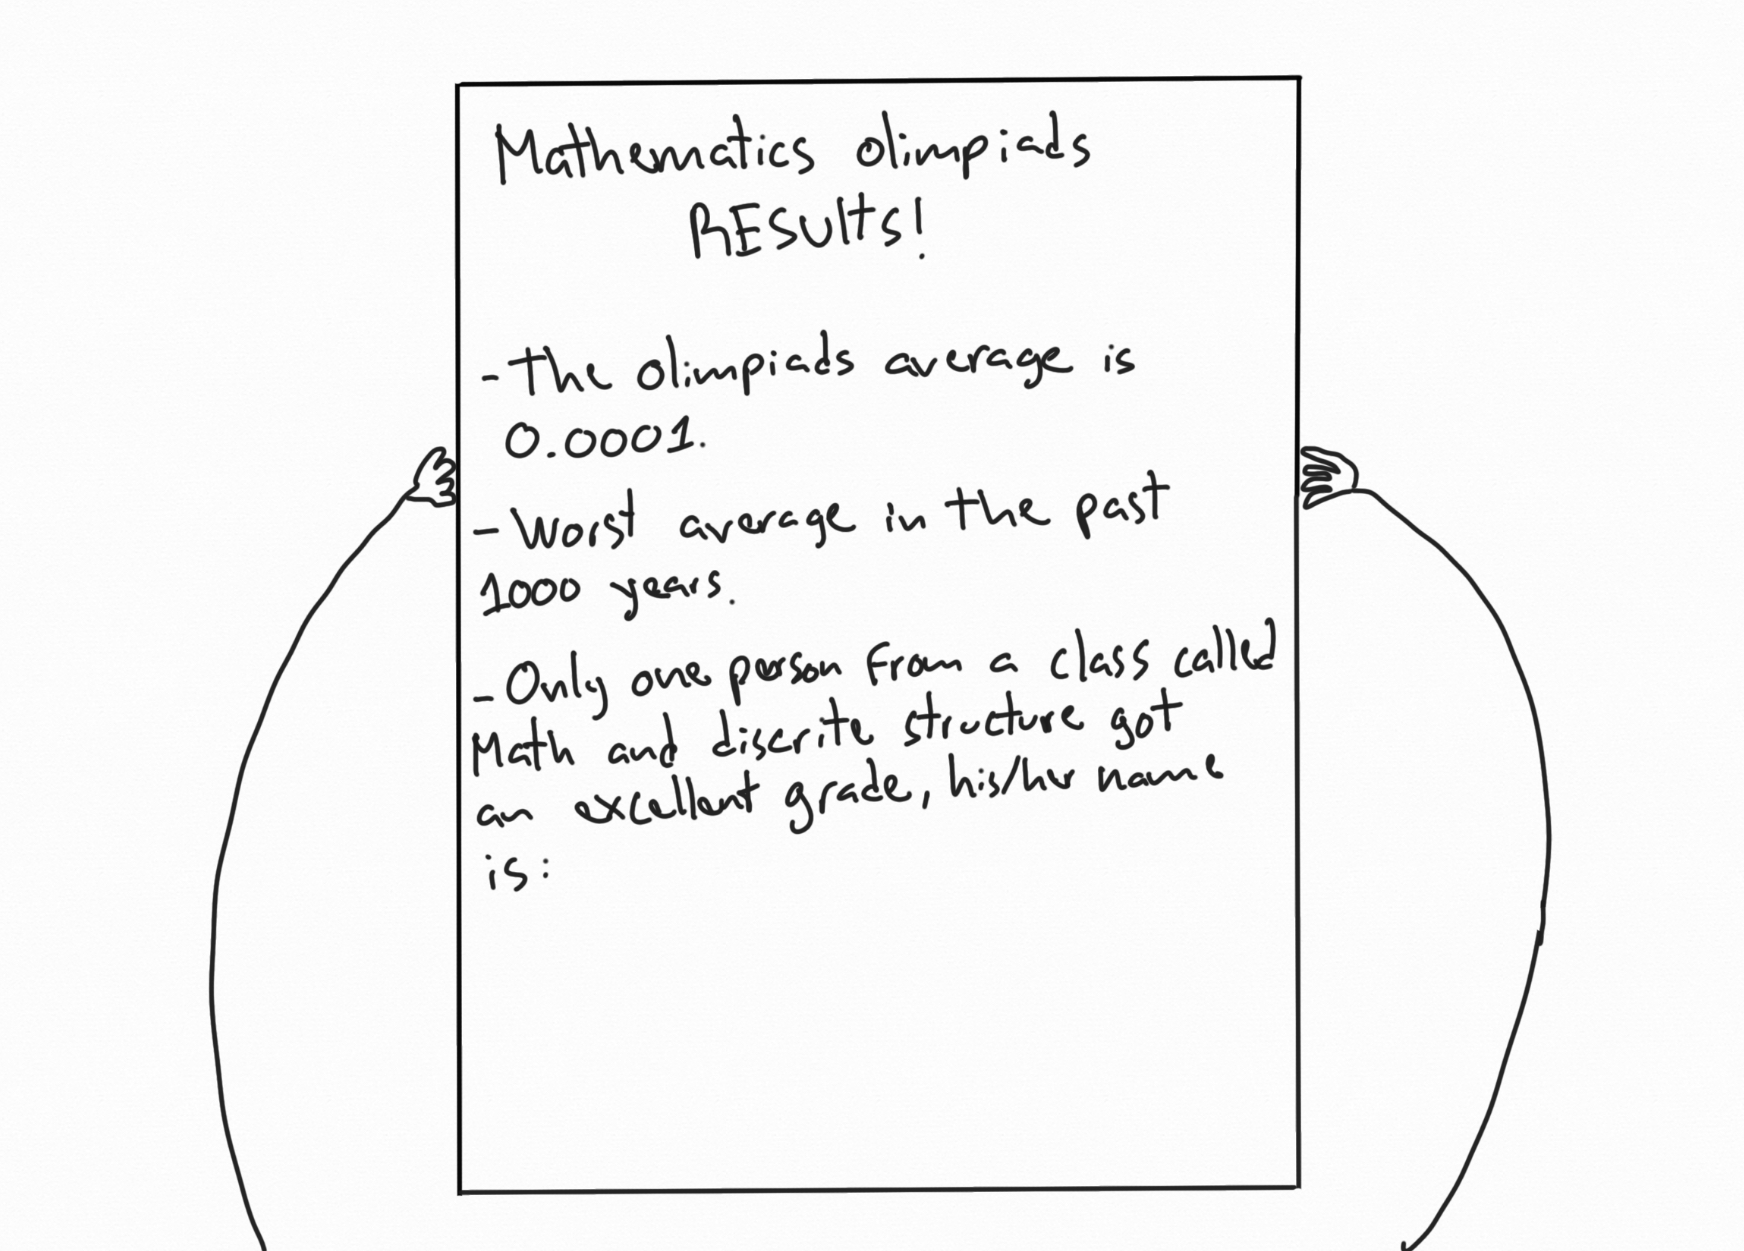 Mathematics olimpiads
RESULTS!
- The olimpiads average is
0.0001.
- Worst average in the past
1000 years.
- Only one person from a class called
Math and discrite structure got
an excellent grade, his/her name
is: